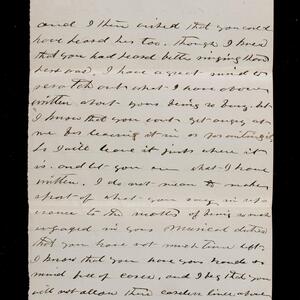 and I then wished that you could
have heard her too. Though I know
that you had heard better singing than
hers was. I have a great mind to
scratch out what I have above
written about your being so busy, but
I know that you wont get angry at
me for leaving it in or for writing it
So I will leave it just where it
is. and let you see what I have
written. I do not mean to make
sport of what you say in ref
erence to the matter of being so much
engaged in your musical duties
that you have not much time left.
I know that you have your hands or
mind full of cares, and I beg that you
will not allow these careless lines above